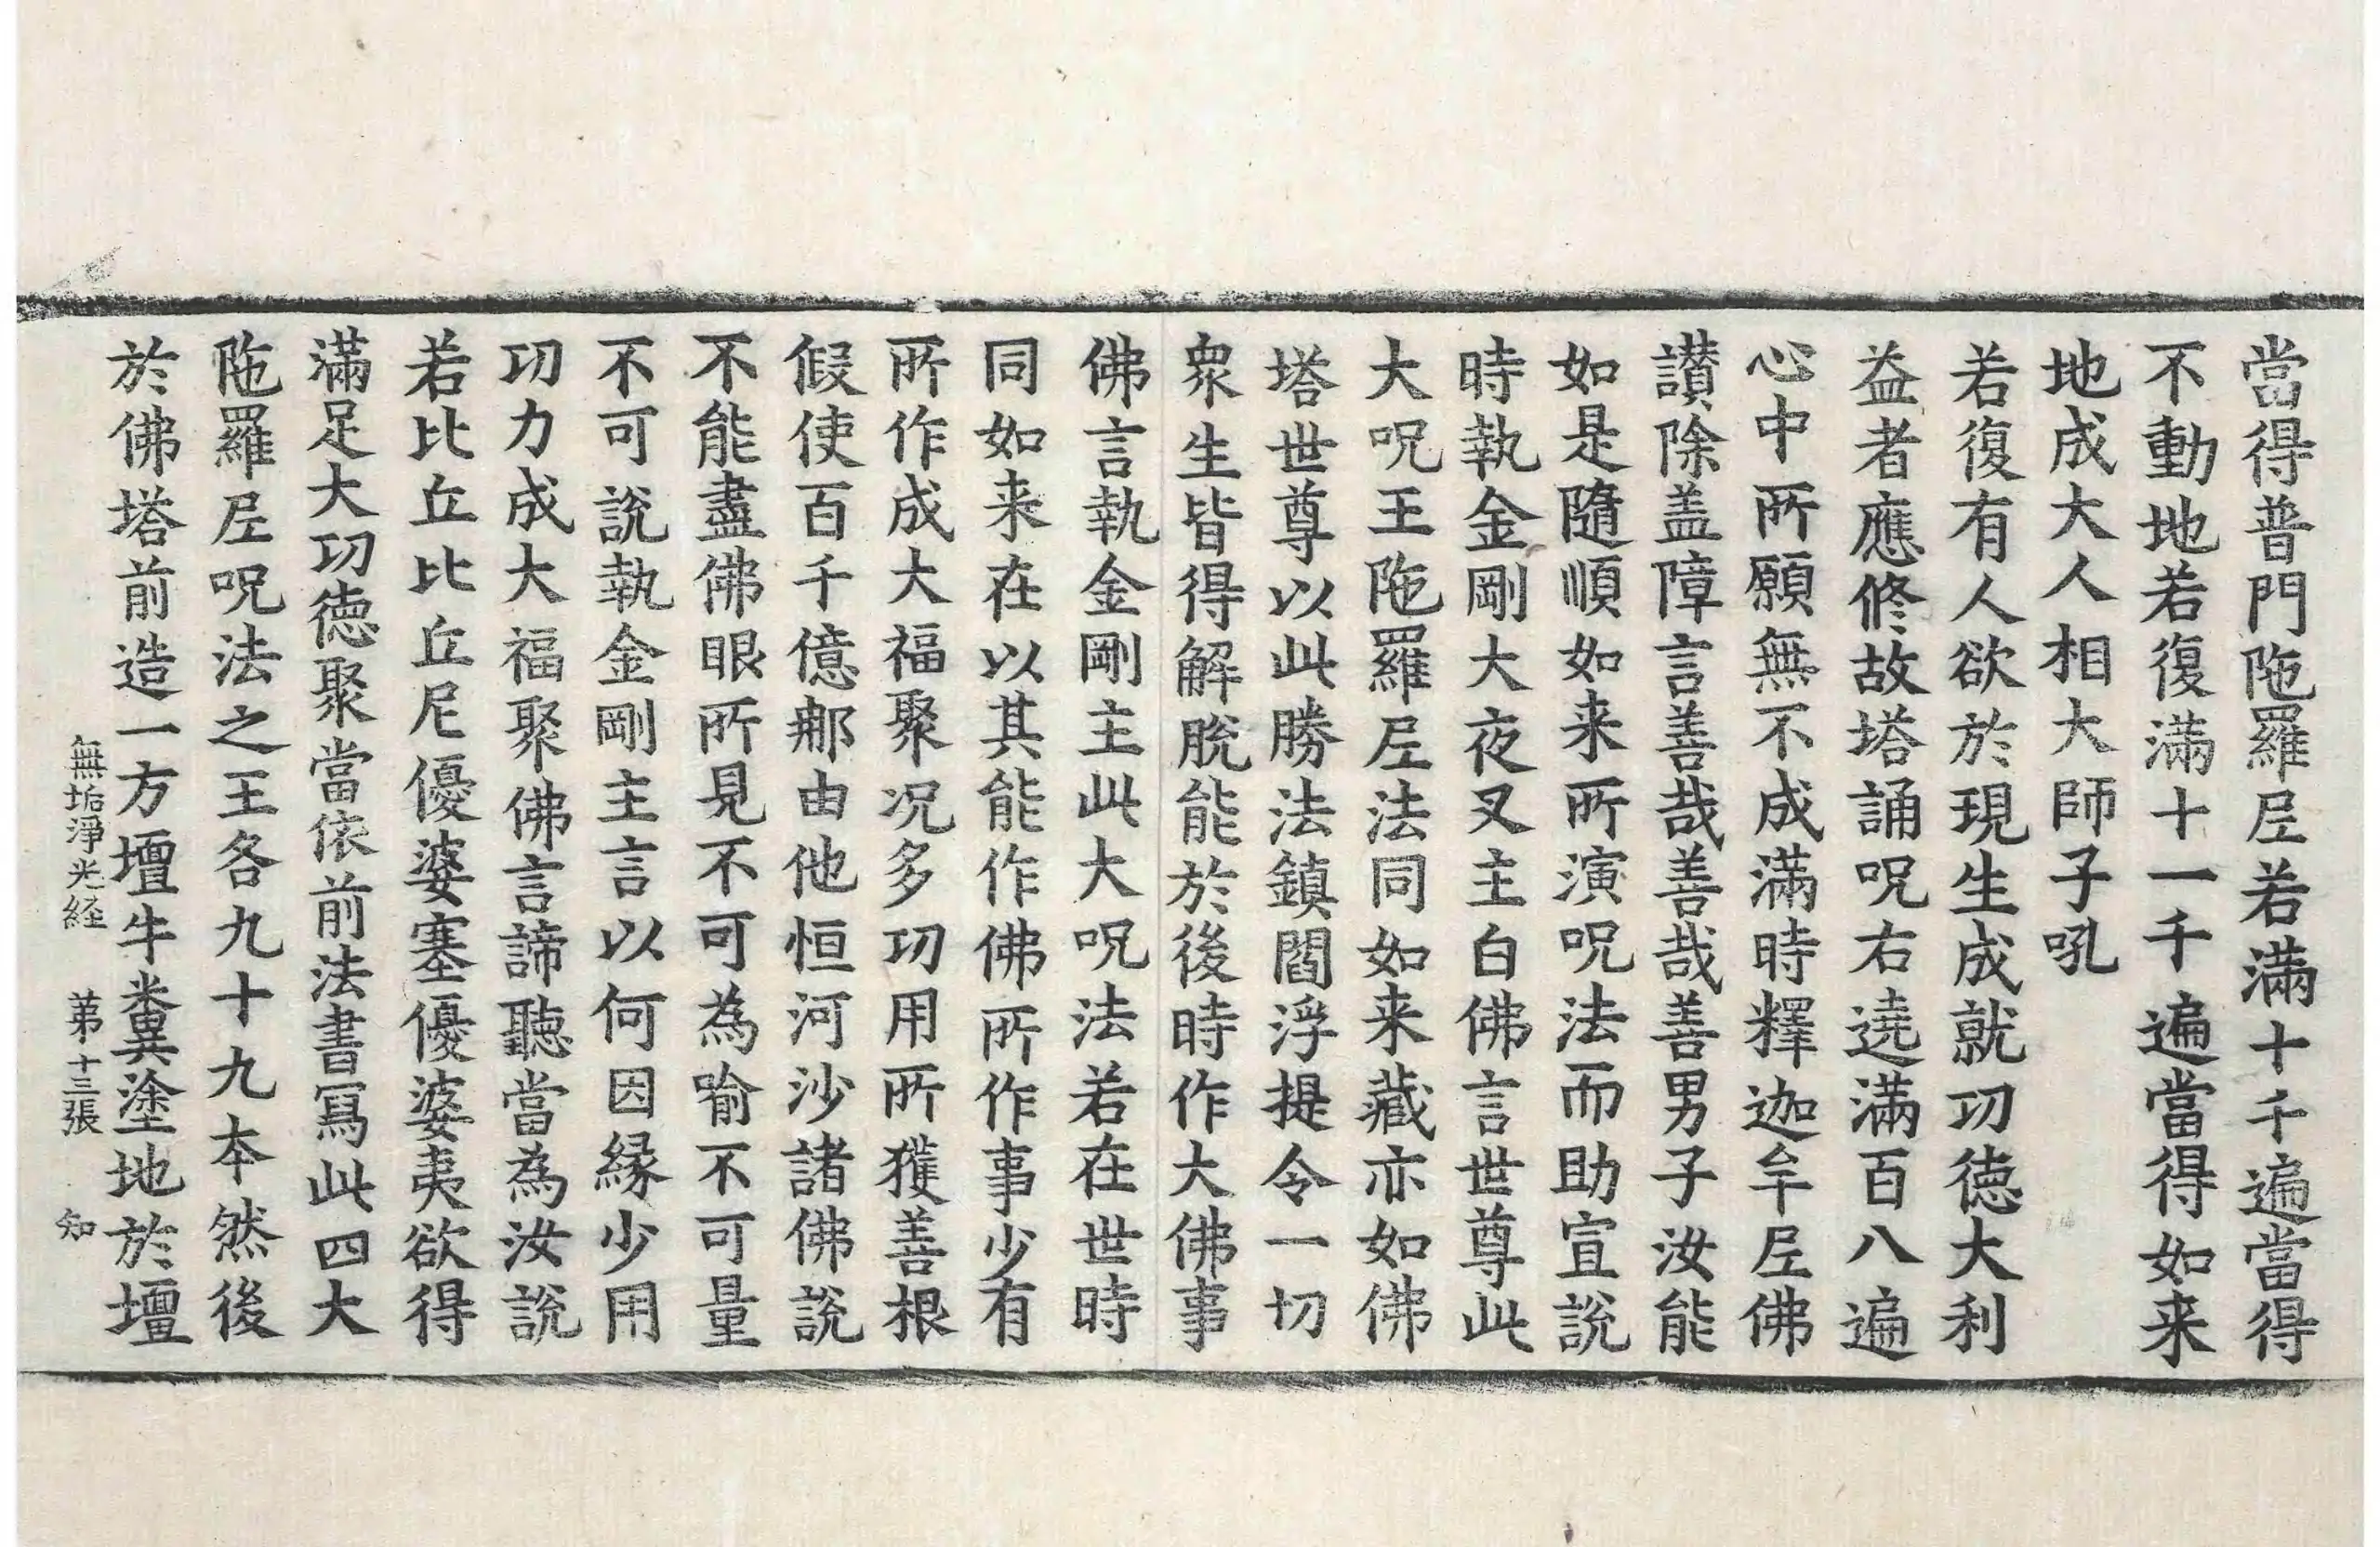 當得普門陁羅𡰱若滿十千遍當得
不動地若復滿十一千遍當得如来
地成大人相大師子吼
若復有人欲於現生成就㓛徳大利
益者應修故塔誦呪右遶滿百八遍
心中所願無不成滿時釋迦牟𡰱佛
讃除盖障言善哉善哉善男子汝能
如是隨順如来所演呪法而助宣說
時執金剛大夜叉主白佛言世尊此
大呪王陁羅𡰱法同如来藏亦如佛
塔世尊以此勝法鎮閻浮提令一切
衆生皆得解脫能於後時作大佛事
佛言執金剛主此大呪法若在世時
同如来在以其能作佛所作事少有
所作成大福聚况多㓛用所獲善根
假使百千億𨚗由他恒河沙諸佛說
不能盡佛眼所見不可為喻不可量
不可說執金剛主言以何因縁少用
㓛力成大福聚佛言諦聽當為汝說
若比丘比丘尼優婆塞優婆夷欲得
滿足大㓛徳聚當依前法書寫此四大
陁羅𡰱呪法之王各九十九本然後
於佛塔前造一方壇牛糞塗地於壇
無垢淨光経 苐十三張 知